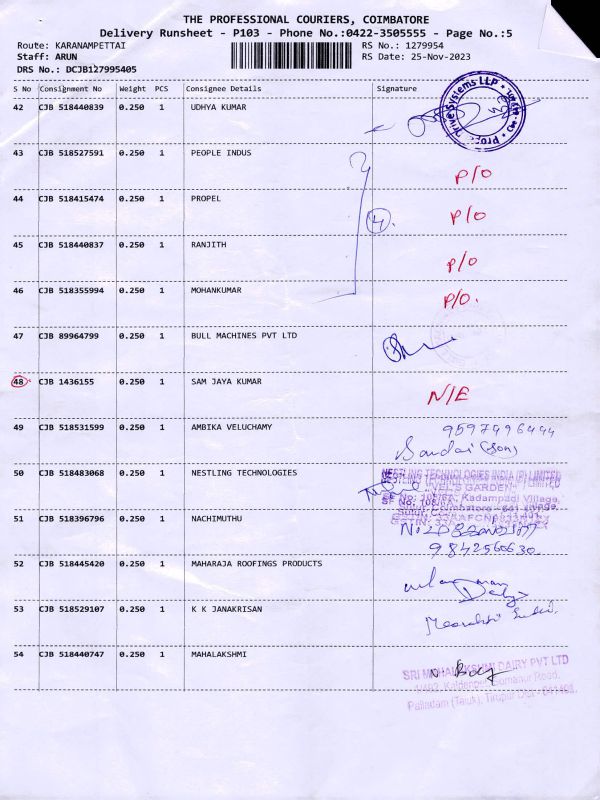 THE PROFESSIONAL COURIERS, COIMBATORE
Delivery Runsheet - P103 - Phone No.:0422-3505555 - Page No.:5
Route: KARANAMPETTAI RS No.: 1279954
Staff: ARUN RS Date: 25-Nov-2023
DRS No.: DCJB127995405
S No Consignment No Weight PCS Consignee Details Signature
42 CJB 518440839 0.250 1 UDHYA KUMAR
43 CJB 518527591 0.250 1 PEOPLE INDUS P/O
44 CJB 518415474 0.250 1 PROPEL 4. P/O
45 CJB 518440837 0.250 1 RANJITH P/O
46 CJB 518355994 0.250 1 MOHANKUMAR P/O.
47 CJB 89964799 0.250 1 BULL MACHINES PVT LTD
48 CJB 1436155 0.250 1 SAM JAYA KUMAR N/E
49 CJB 518531599 0.250 1 AMBIKA VELUCHAMY 9597496444
(Son)
50 CJB 518483068 0.250 1 NESTLING TECHNOLOGIES
NESTLING TECHNOLOGIES INDIA (P) LIMITED
NEL'S GARDEN
Kadampadi Village,
51 CJB 518396796 0.250 1 NACHIMUTHU
9842566630
52 CJB 518445420 0.250 1 MAHARAJA ROOFINGS PRODUCTS
53 CJB 518529107 0.250 1 K K JANAKRISAN
54 CJB 518440747 0.250 1 MAHALAKSHMI
SRI MAHALAKSHMI DAIRY PVT LTD
Palladam (Taluk), Tirupur Dist - 641401.